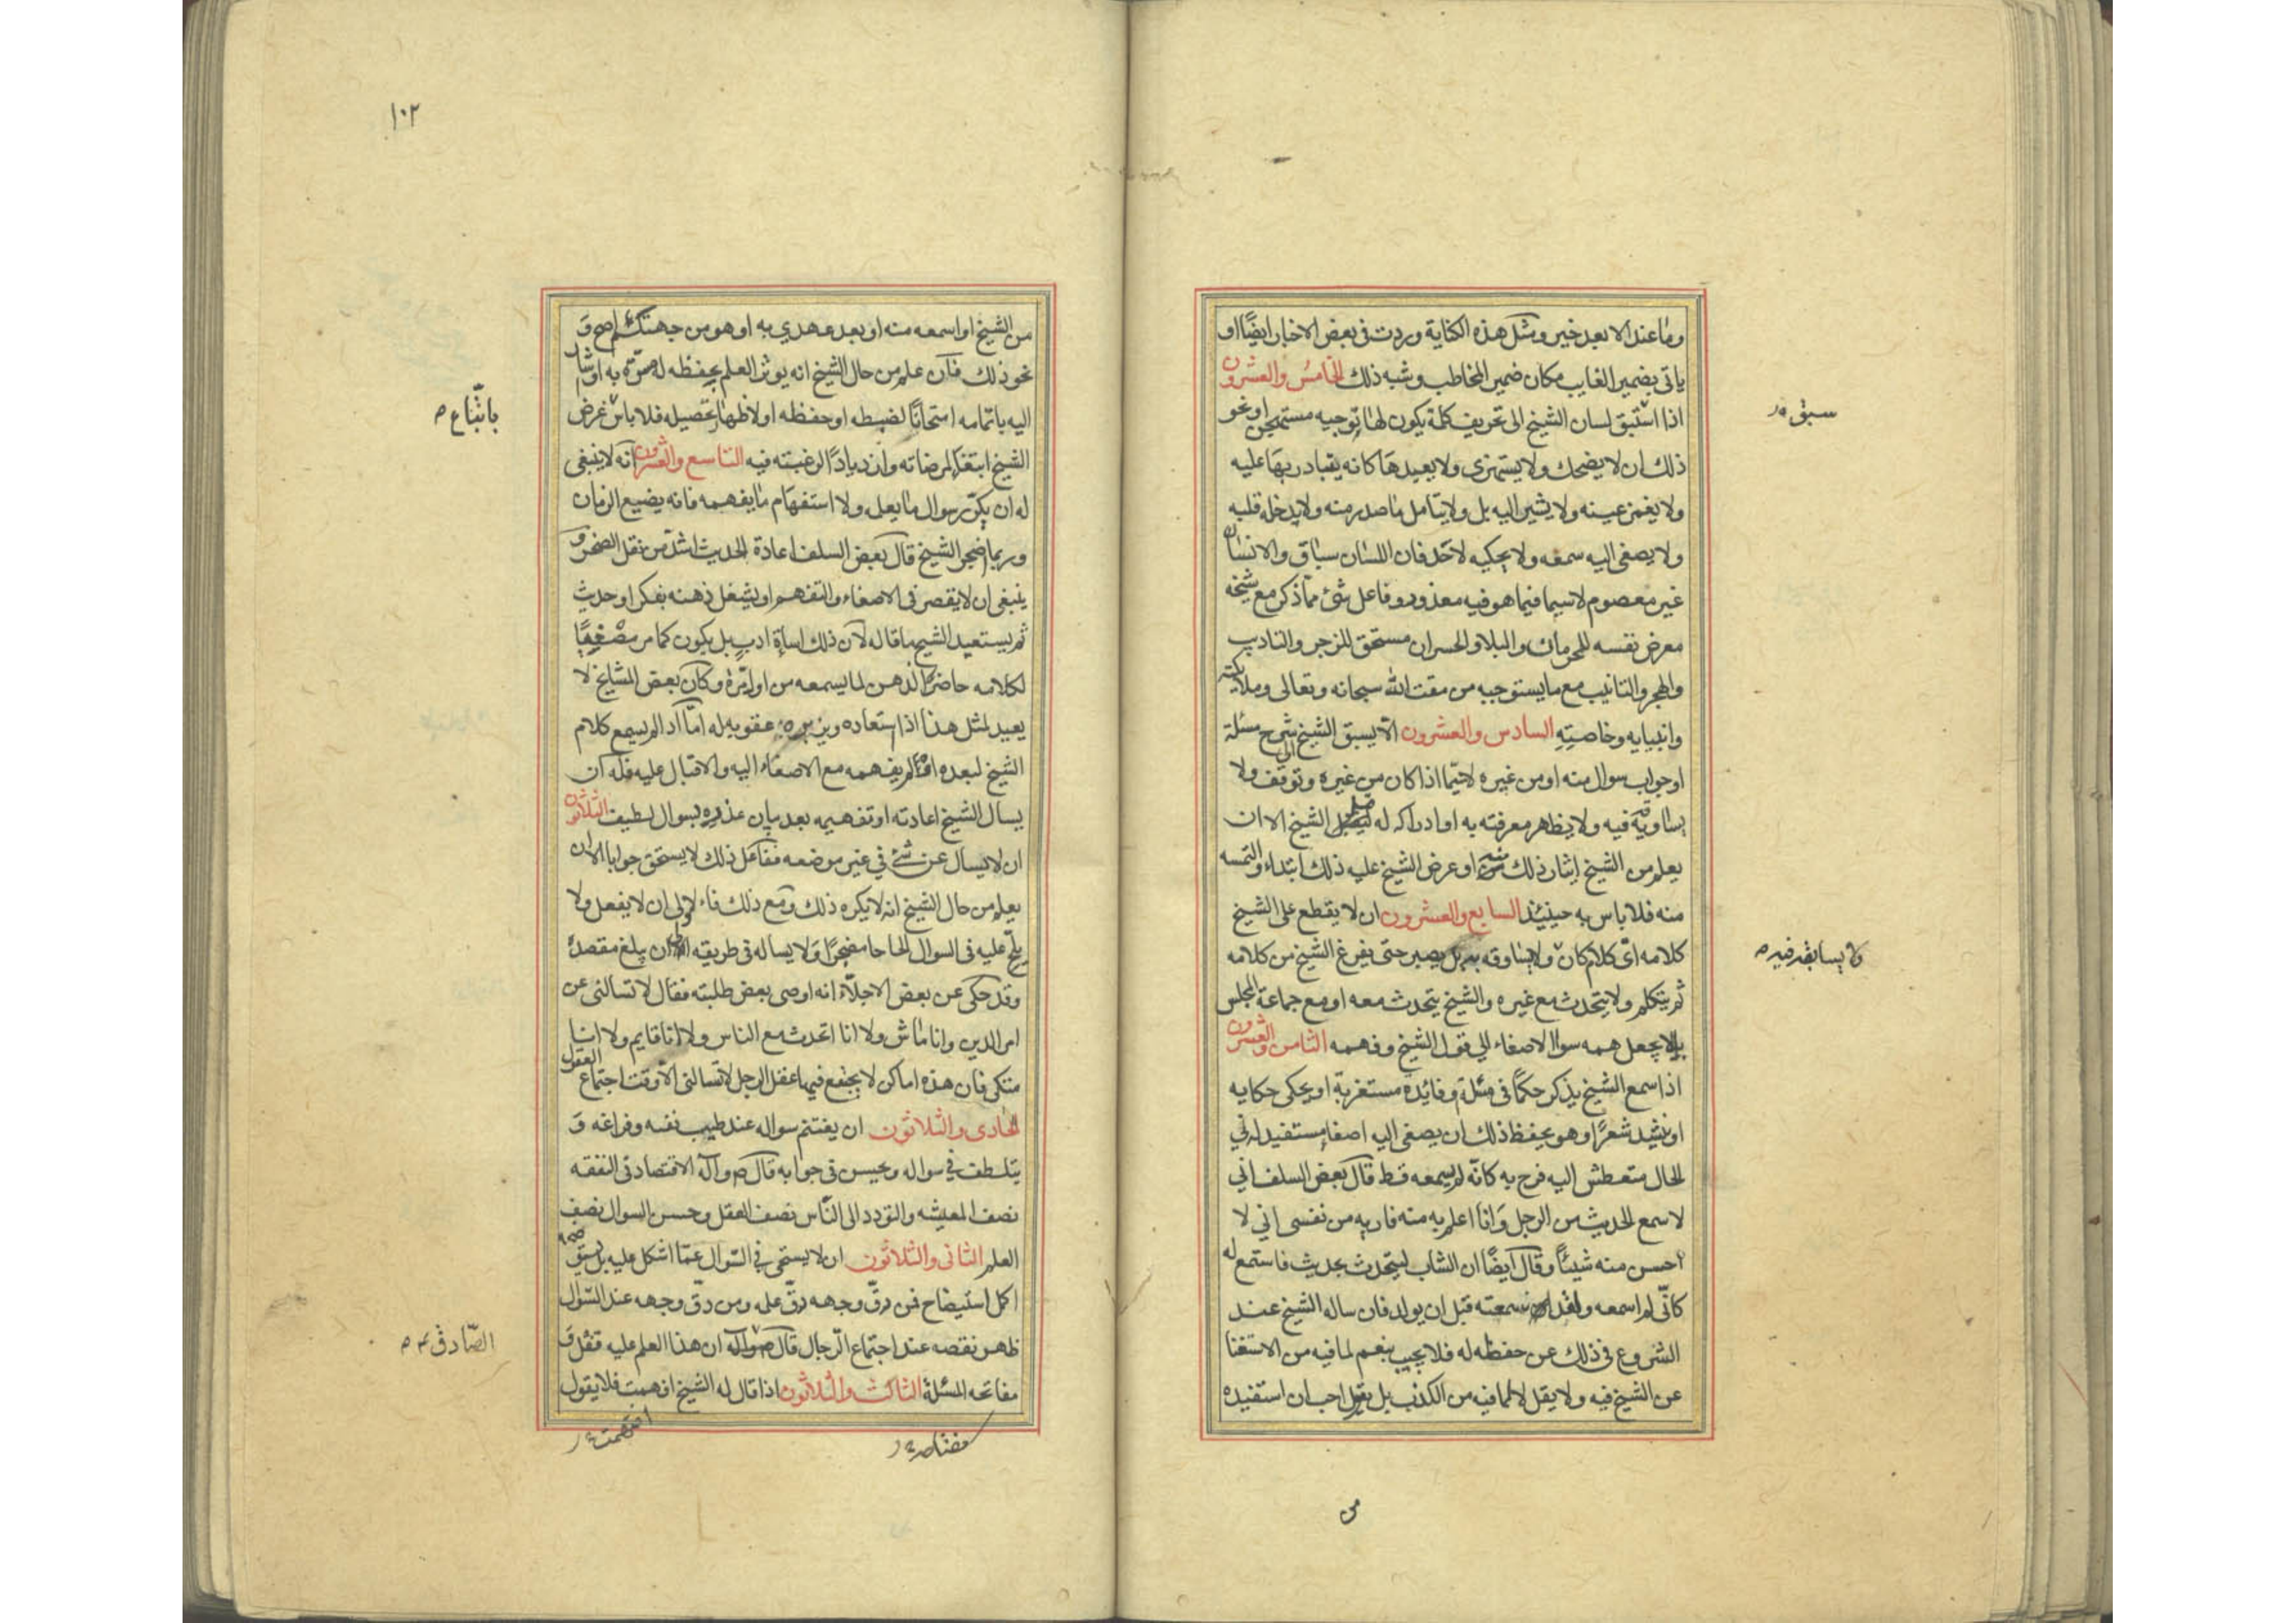 وما عند الابعد خير ومثل هذه الكناية وردت في بعض الاخبار ايضًا او
ياتي بضمير الغايب مكان ضمير المخاطب وشبه ذلك الخامس والعشرون
اذا استبق لسان الشيخ الى تحريف كلمة يكون لها توجيه مستهجن او نحو
سبق
ذلك ان لا يضحك ولا يستهزى ولا يعيدها كانه يتبادر بها عليه
ولا يغمز عينه ولا يشير اليه بل ولا يتامل ما صدر منه ولا يدخله قلبه
ولا يصغى اليه سمعه ولا يحكيه لاحد فان اللسان سباق والانسان
غير معصوم لا سيما فيما هو فيه معذور وفاعل شئ مما ذكر مع شيخه
معرض نفسه للحرمان والبلاو الخسران مستحق للزجر والتاديب
والهجر والتانيب مع ما يستوجبه من مقت الله سبحانه وتعالى وملايكته
وانبيايه وخاصيته السادس والعشرون الّا يسبق الشيخ الى شرح مسئلة
او جواب سوال منه او من غيره لاسيّما اذا كان من غيره وتوقف ولا
يساوقه فيه ولا يظهر معرفته به او ادراكه له قبل الشيخ الا ان
يعلم من الشيخ ايثار ذلك منه او عرض الشيخ عليه ذلك ابتداء والتمسه
منه فلا باس به حينيئذ السابع والعشرون ان لا يقطع على الشيخ
كلامه اىّ كلام كان ولا يساوقه به بل يصبر حتى يفرغ الشيخ من كلامه
ولا يسابقه فيه
ثم يتكلم ولا يتحدث مع غيره والشيخ يتحدث معه او مع جماعة المجلس
بل لا يجعل همه سوا الاصغاء الي قول الشيخ وفهمه الثامن والعشرون
اذا سمع الشيخ يذكر حكمًا في مسئلة وفائدة مستغربة او يحكى حكايه
او ينشد شعرًا وهو يحفظ ذلك ان يصغى اليه اصغا مستفيد له في
الحال متعطش اليه فرح به كانّه لم يسمعه قط قال بعض السلف اني
لاسمع الحديث من الرجل وانا اعلم به منه فاريه من نفسى انى لا
احسن منه شيئًا وقال ايضًا ان الشاب ليتحدث بحديث فاستمع له
كانّى لم اسمعه ولقد سمعته قبل ان يولد فان ساله الشيخ عند
الشروع في ذلك عن حفظه له فلا يجيب بنعم لما فيه من الاستغنا
عن الشيخ فيه ولا يقل لا لما فيه من الكذب بل يقول احب ان استفيده
من
١٠٢
من الشيخ او اسمعه منه او بعد عهدي به او هو من جهتك اصح و
نحو ذلك فان علم من حال الشيخ انه يوثر العلم بحفظه له مسرّة به او اشار
اليه باتمامه امتحانًا لضبطه او حفظه او لاظهار تحصيله فلا باس غرض
باتّباع
الشيخ ابتغاء لمرضاته وازديادًا لرغبته فيه التاسع والعشرون انه لا ينبغى
له ان يكرّر سوال ما يعلمه ولا استفهام ما يفهمه فانه يضيع الزمان
وربما اضجر الشيخ قال بعض السلف اعادة الحديث اشدّ من نقل الصخر و
ينبغى ان لا يقصر في الاصغاء والتفهم او يشغل ذهنه بفكر او حديث
ثم يستعيد الشيخ ما قاله لان ذلك اساءة ادب بل يكون كما مر مصغيًا
لكلامه حاضر الذهن لما يسمعه من اول مرّة وكان بعض المشايخ لا
يعيد لمثل هذا اذا استعاده ويزبره عقوبه له امّا اذا لم يسمع كلام
الشيخ لبعده او لم يفهمه مع الاصغاء اليه والاقبال عليه فله ان
يسال الشيخ اعادته او تفهيمه بعد بيان عذره بسوال لطيف الثلاثون
ان لا يسال عن شئ في غير موضعه ففاعل ذلك لا يستحق جوابا الا ان
يعلم من حال الشيخ انه لا يكره ذلك ومع ذلك فاالاولى ان لا يفعل ولا
يلحّ عليه في السوال الحاحا مضجرًا ولا يساله في طريقه الى ان يبلغ مقصده
وقد حكى عن بعض الاجلّاء انه اوصى بعض طلبته فقال لا تسالنى عن
امر الدين وانا ماش ولا انا اتحدث مع الناس ولا انا قايم ولا انا
متكى فان هذه اماكن لا يجتمع فيها عقل الرجل لا تسالنى الا وقت اجتماع العقل
الحادى والثلاثون ان يغتنم سواله عند طيب نفسه وفراغه و
يتلطف في سواله ويحسن في جوابه قال ص وآله الاقتصاد في النفقه
نصف المعيشه والتودد الى النّاس نصف العقل وحسن السوال نصف
العلم الثانى والثلاثون ان لا يستحى في السّوال عمّا اشكل عليه بل يستوضحه
اكمل استيضاح فمن رقّ وجهه رقّ علمه ومن رقّ وجهه عند السّوال
ظهر نقصه عند اجتماع الرّجال قال ص وآله ان هذا العلم عليه قفل و
الصّادق
مفاتحه المسئلة الثالث والثلاثون اذا قال له الشيخ افهمت فلا يقول
مفتاحه
افهمت